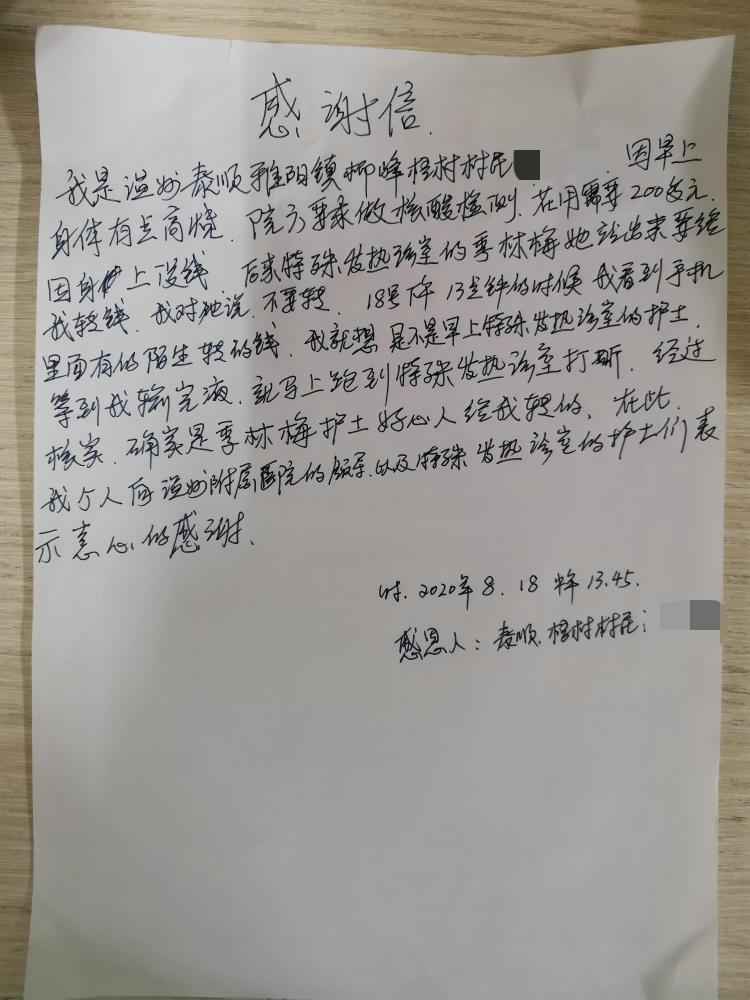 感谢信.
我是温州泰顺雅阳镇柳峰梧村村民 因早上
身体有点高烧. 院方要求做核酸检测. 花用需要200多元.
因身上没钱 后来特殊发热诊室的季林梅她说出来要给
我转钱. 我对她说. 不要转. 18号下午 13点钟的时候 我看到手机
里面有的陌生转的钱. 我就想 是不是早上特殊发热诊室的护士.
等到我输完液. 就马上跑到特殊发热诊室打听. 经过
核实. 确实是季林梅护士好心人给我转的. 在此.
我个人向温州附属医院的领导.以及特殊发热诊室的护士们表
示衷心的感谢.
时. 2020年8.18 下午13.45.
感恩人: 泰顺.梧村村民: